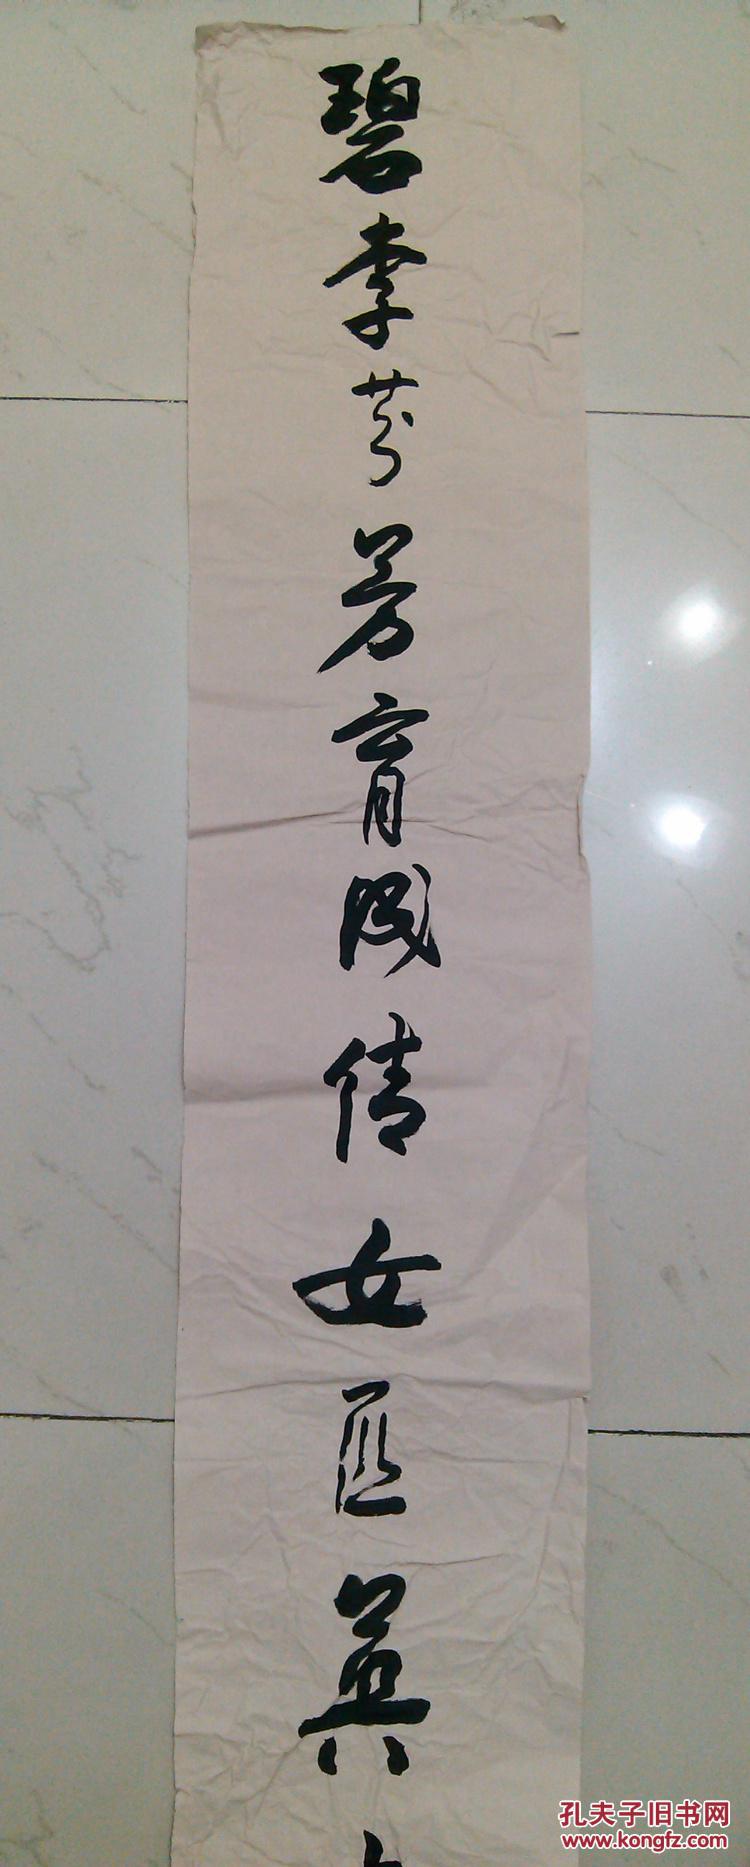 碧李芬芳育成倩女匹英
孔夫子旧书网
www.kongfz.com